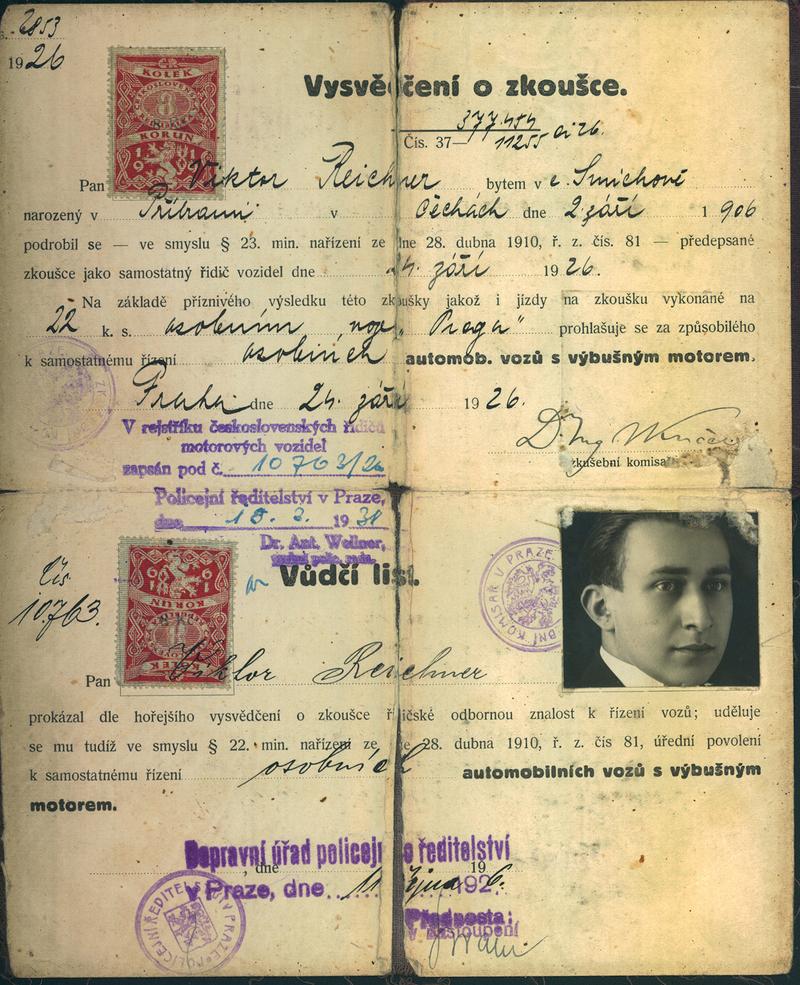 2853
1926
KOLEK
3
KORUN
1919
Vysvědčení o zkoušce.
377.484
Čís. 37— 11255 ai 26.
Pan Viktor Reichner bytem v e Smíchově
narozený v Příbrami v Čechách dne 2. září 1906
podrobil se — ve smyslu § 23. min. nařízení ze dne 28. dubna 1910, ř. z. čís. 81 — předepsané
zkoušce jako samostatný řidič vozidel dne 24. září 1926.
Na základě příznivého výsledku této zkoušky jakož i jízdy na zkoušku vykonané na
22 k. s. osobním voze „Praga" prohlašuje se za způsobilého
k samostatnému řízení osobních automob. vozů s výbušným motorem.
Praha dne 24. září 1926.
V rejstříku československých řidičů
motorových vozidel
zapsán pod č. 10763/26
zkušební komisař
Policejní ředitelství v Praze,
dne 19 31
Dr. Ant. Wellner,
Vůdčí list.
Čís
10763.
KORUN
KOLEK
Pan Viktor Reichner
prokázal dle hořejšího vysvědčení o zkoušce řidičské odbornou znalost k řízení vozů; uděluje
se mu tudíž ve smyslu § 22. min. nařízení ze dne 28. dubna 1910, ř. z. čís 81, úřední povolení
k samostatnému řízení osobních automobilních vozů s výbušným
motorem.
Dopravní úřad policejního ředitelství
, dne 19
v Praze, dne 11 října 1926.
Přednosta:
v zastoupení
POLICEJNÍ ŘEDITELSTVÍ V PRAZE